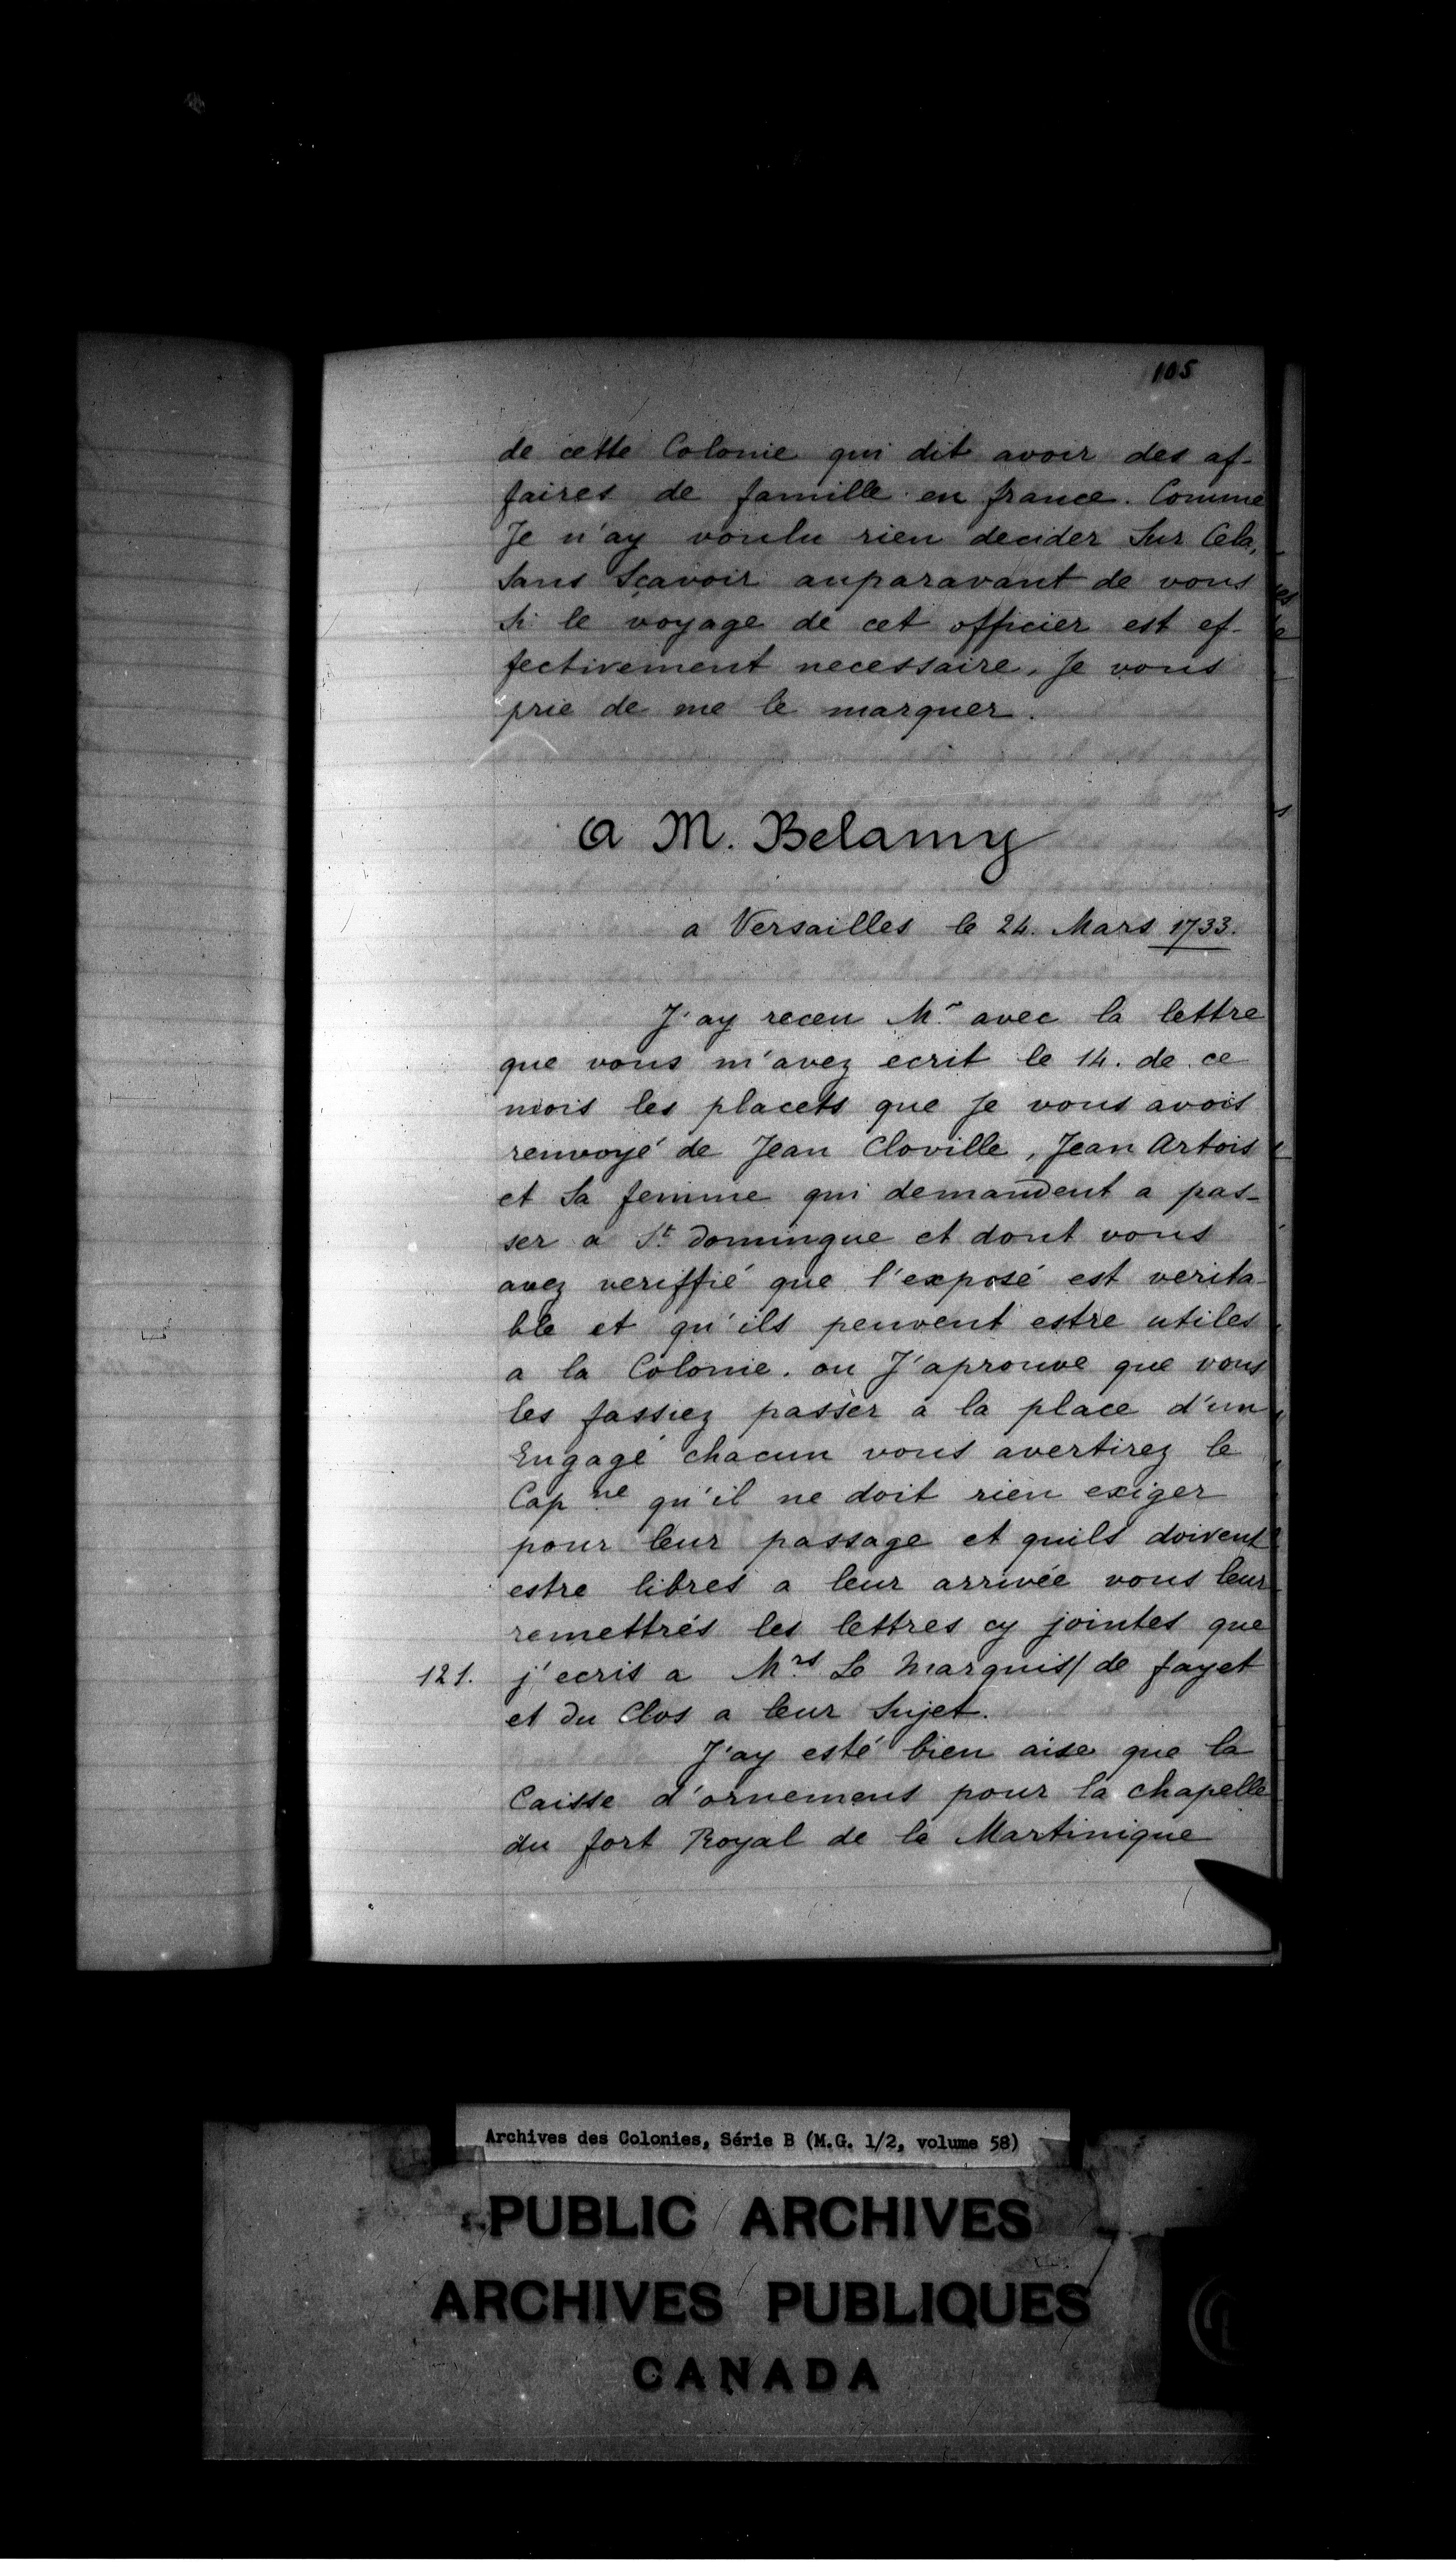 105
de cette Colonie qui dit avoir des af-
faires de famille en france. Comme
Je n'ay voulu rien decider Sur Cela,
Sans Sçavoir auparavant de vous
Si le voyage de cet officier est ef-
fectivement necessaire, Je vous
prie de me le marquer.
a M. Belamy
a Versailles le 24. Mars 1733.
J'ay receu Mr. avec la lettre
que vous m'avez ecrit le 14. de ce
mois les placets que Je vous avois
renvoyé de Jean Cloville, Jean Artois
et Sa femme qui demandent a pas-
ser a St. Domingue et dont vous
avez veriffié que l'exposé est verita-
ble et qu'ils peuvent estre utiles
a la Colonie. ou J'aprouve que vous
les fassiez passer a la place d'un
Engagé chacun vous avertirez le
Cap.ne qu'il ne doit rien exiger
pour leur passage et quils doivent
estre libres a leur arrivée vous leur
remettrés les lettres cy jointes que
121. j'ecris a Mrs. Le Marquis/ de fayet
et du Clos a leur Sujet.
J'ay esté bien aise que la
Caisse d'ornemens pour la chapelle
du fort Royal de la Martinique
Archives des Colonies, Série B (M.G. 1/2, volume 58)
PUBLIC ARCHIVES
ARCHIVES PUBLIQUES
CANADA